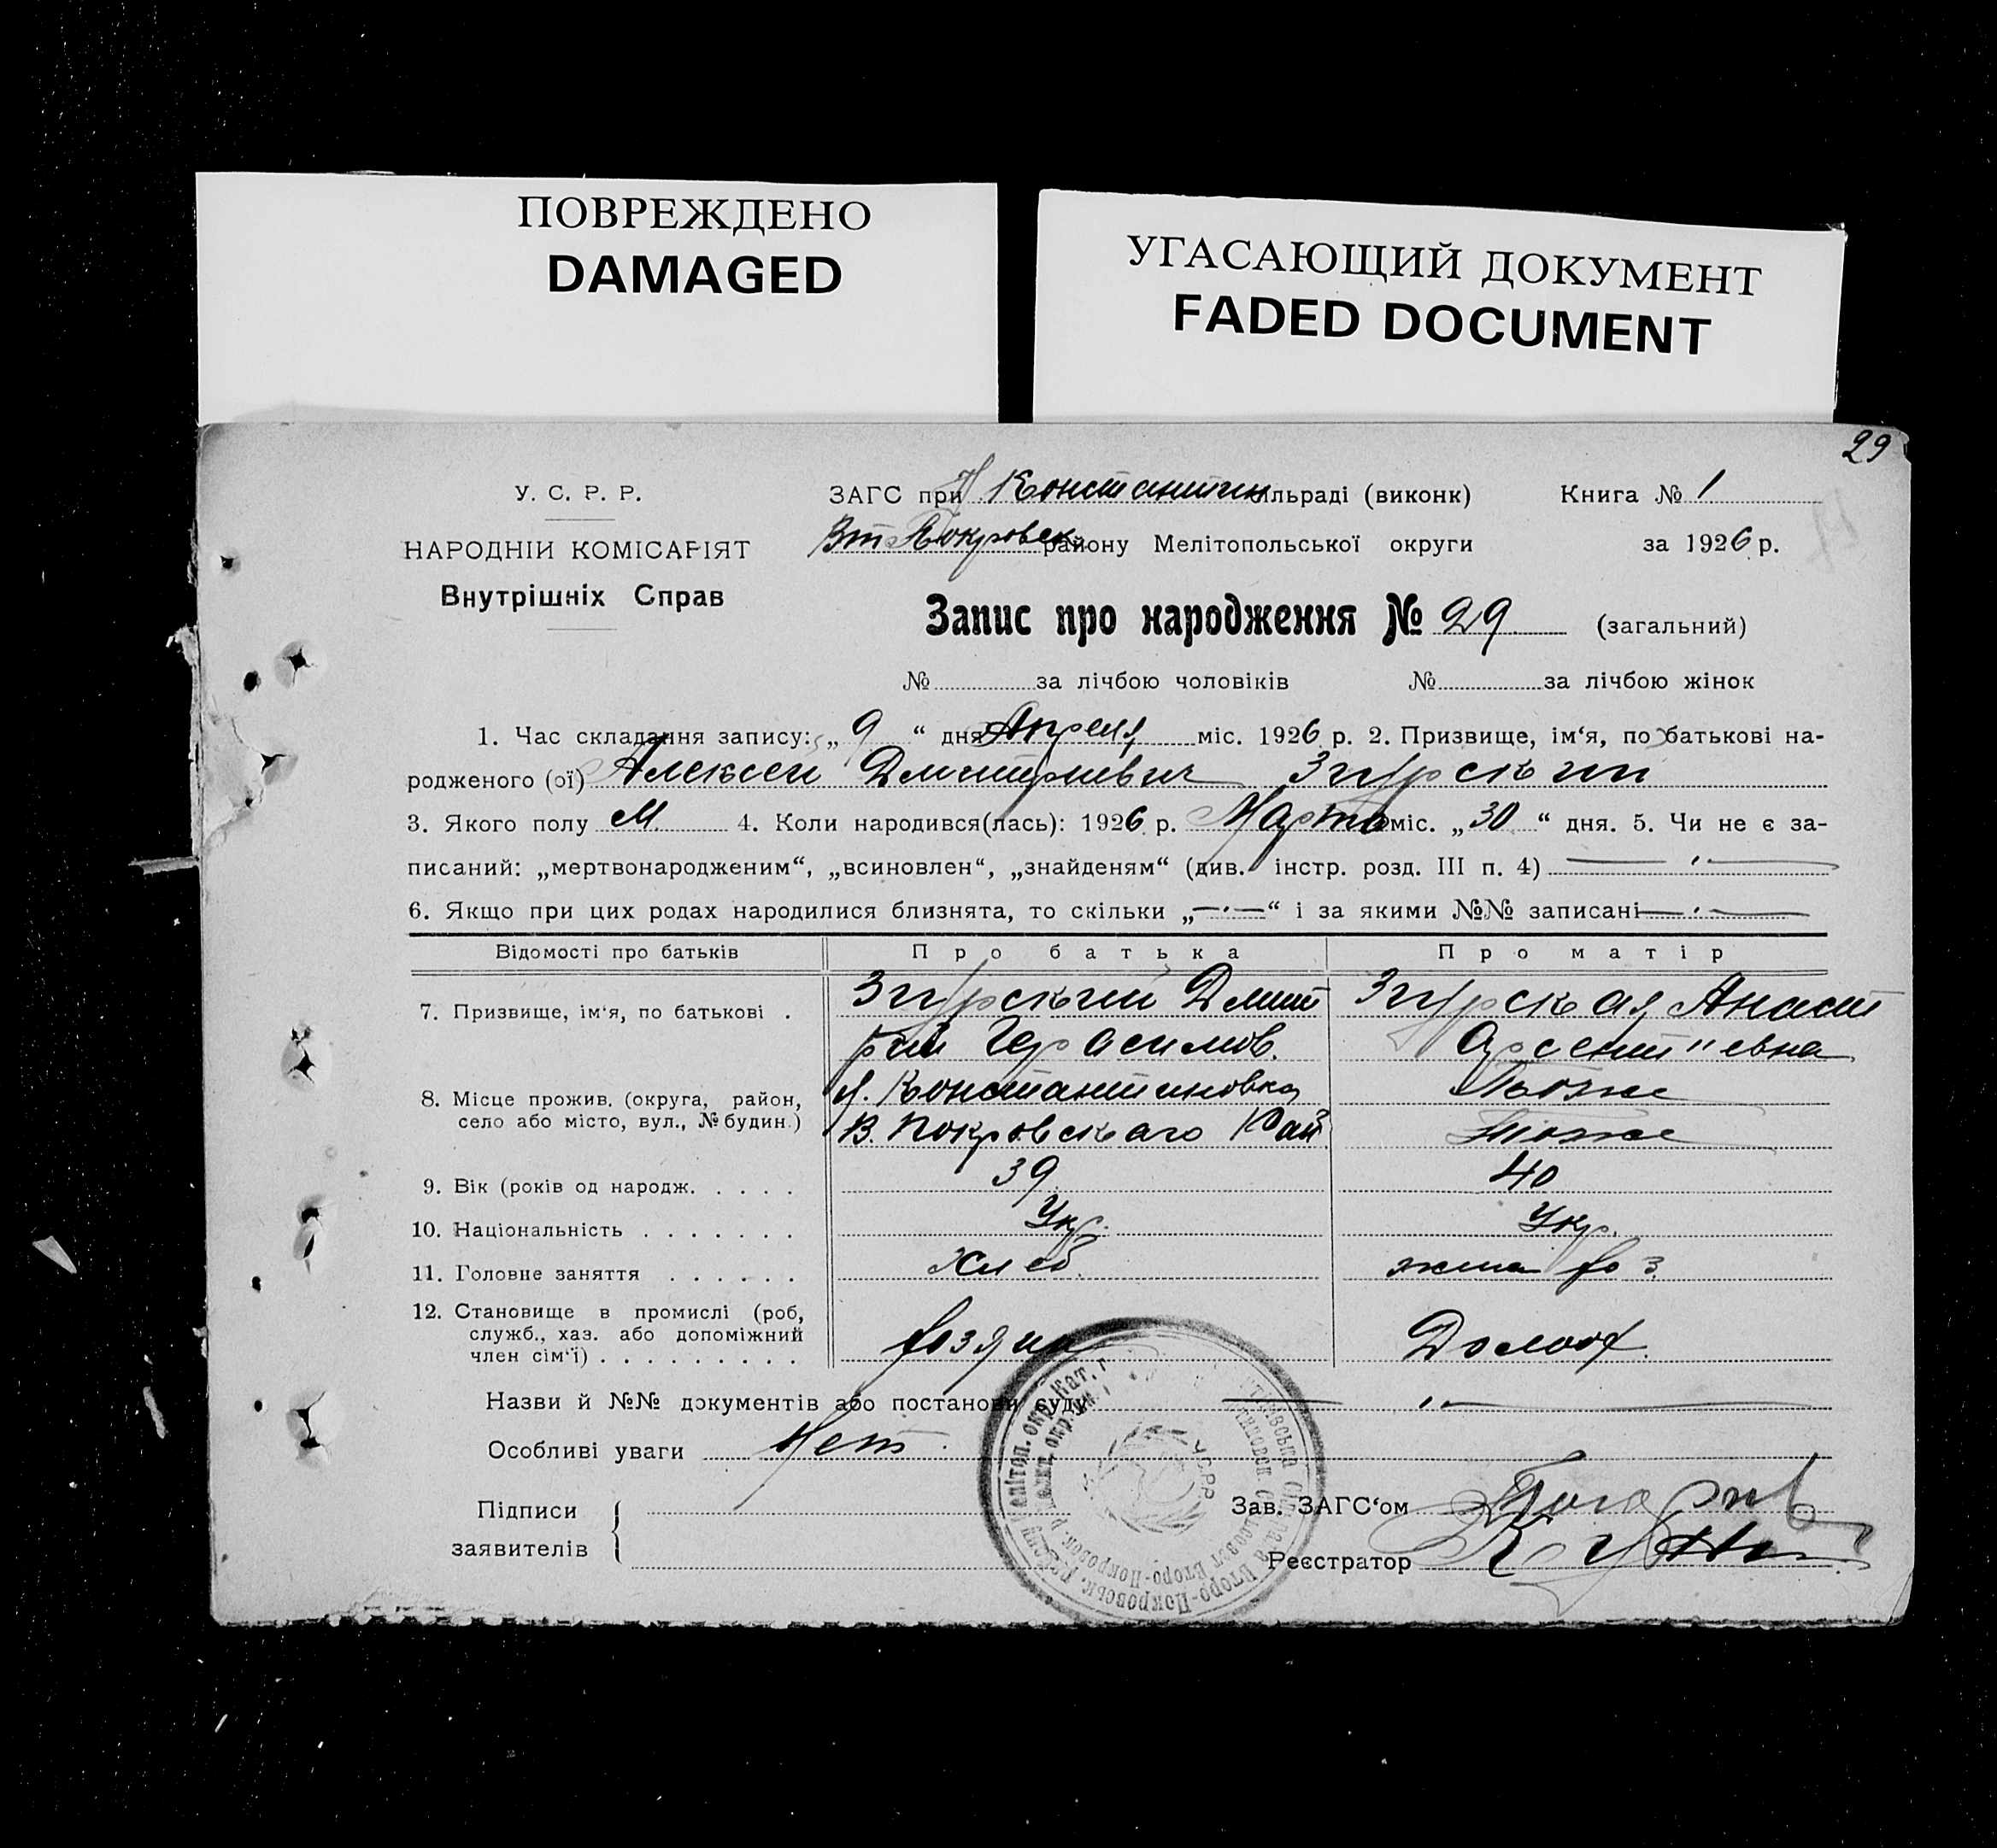 ПОВРЕЖДЕНО
DAMAGED
УГАСАЮЩИЙ ДОКУМЕНТ
FADED DOCUMENT
29
У. С. Р. Р.
ЗАГС при Н Константин ільраді (виконк)
Книга № 1
НАРОДНІЙ КОМІСАРІЯТ
Вт Покровск району Мелітопольської округи
за 1926 р.
Внутрішніх Справ
Запис про народження № 29 (загальний)
№ за лічбою чоловіків № за лічбою жінок
1. Час складання запису: „ 9 “ дня Апреля міс. 1926 р. 2. Призвище, ім‘я, по батькові на-
родженого (ої) Алексей Дмитриевич Згурский
3. Якого полу М. 4. Коли народився(лась): 1926 р. Марта міс. „ 30 “ дня. 5. Чи не є за-
писаний: „мертвонародженим“, „всиновлен“, „знайденям“ (див. інстр. розд. III п. 4) — „ —
6. Якщо при цих родах народилися близнята, то скільки „—·—“ і за якими №№ записані — „ —
Відомості про батьків Про батька Про матір
7. Призвище, ім‘я, по батькові . Згурский Дмит Згурская Анаст
рий Герасимов. Арсентиевна
8. Місце прожив. (округа, район, Н. Константиновка Тоже
село або місто, вул., № будин.) В. Покровскаго Рай Тоже
9. Вік (років од народж. . . . . 39 40
10. Національність . . . . . . . Укр. Укр.
11. Головне заняття . . . . . . Хлеб. жена хоз
12. Становище в промислі (роб,
служб., хаз. або допоміжний хозяин Домох.
член сім‘ї) . . . . . . . . .
Назви й №№ документів або постанови суду — „ —
Особливі уваги Нет
Підписи
заявителів
Зав. ЗАГС‘ом
Реєстратор
У.С.Р.Р.